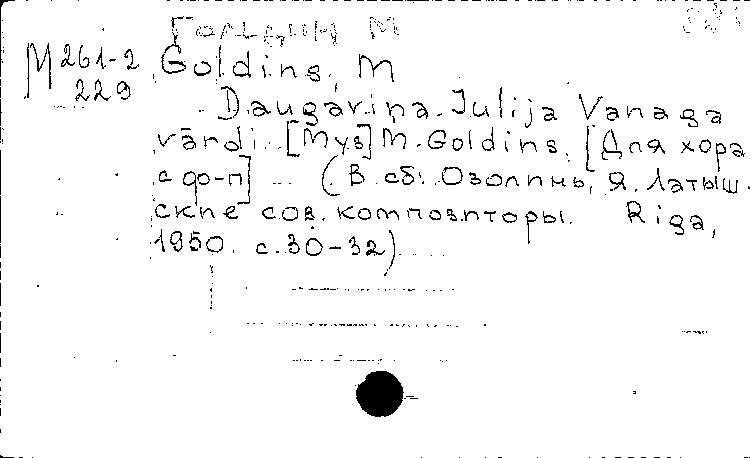 Гольдин М
М261-2 Goldins, M
229
Daugaviņa. Julija Vanaga
vārdi. [Муз] M. Goldins. [Для хора
с ф-п] (В сб: Озолинь, Я. Латыш-
ские сов. композиторы. Riga,
1950. с.30-32)